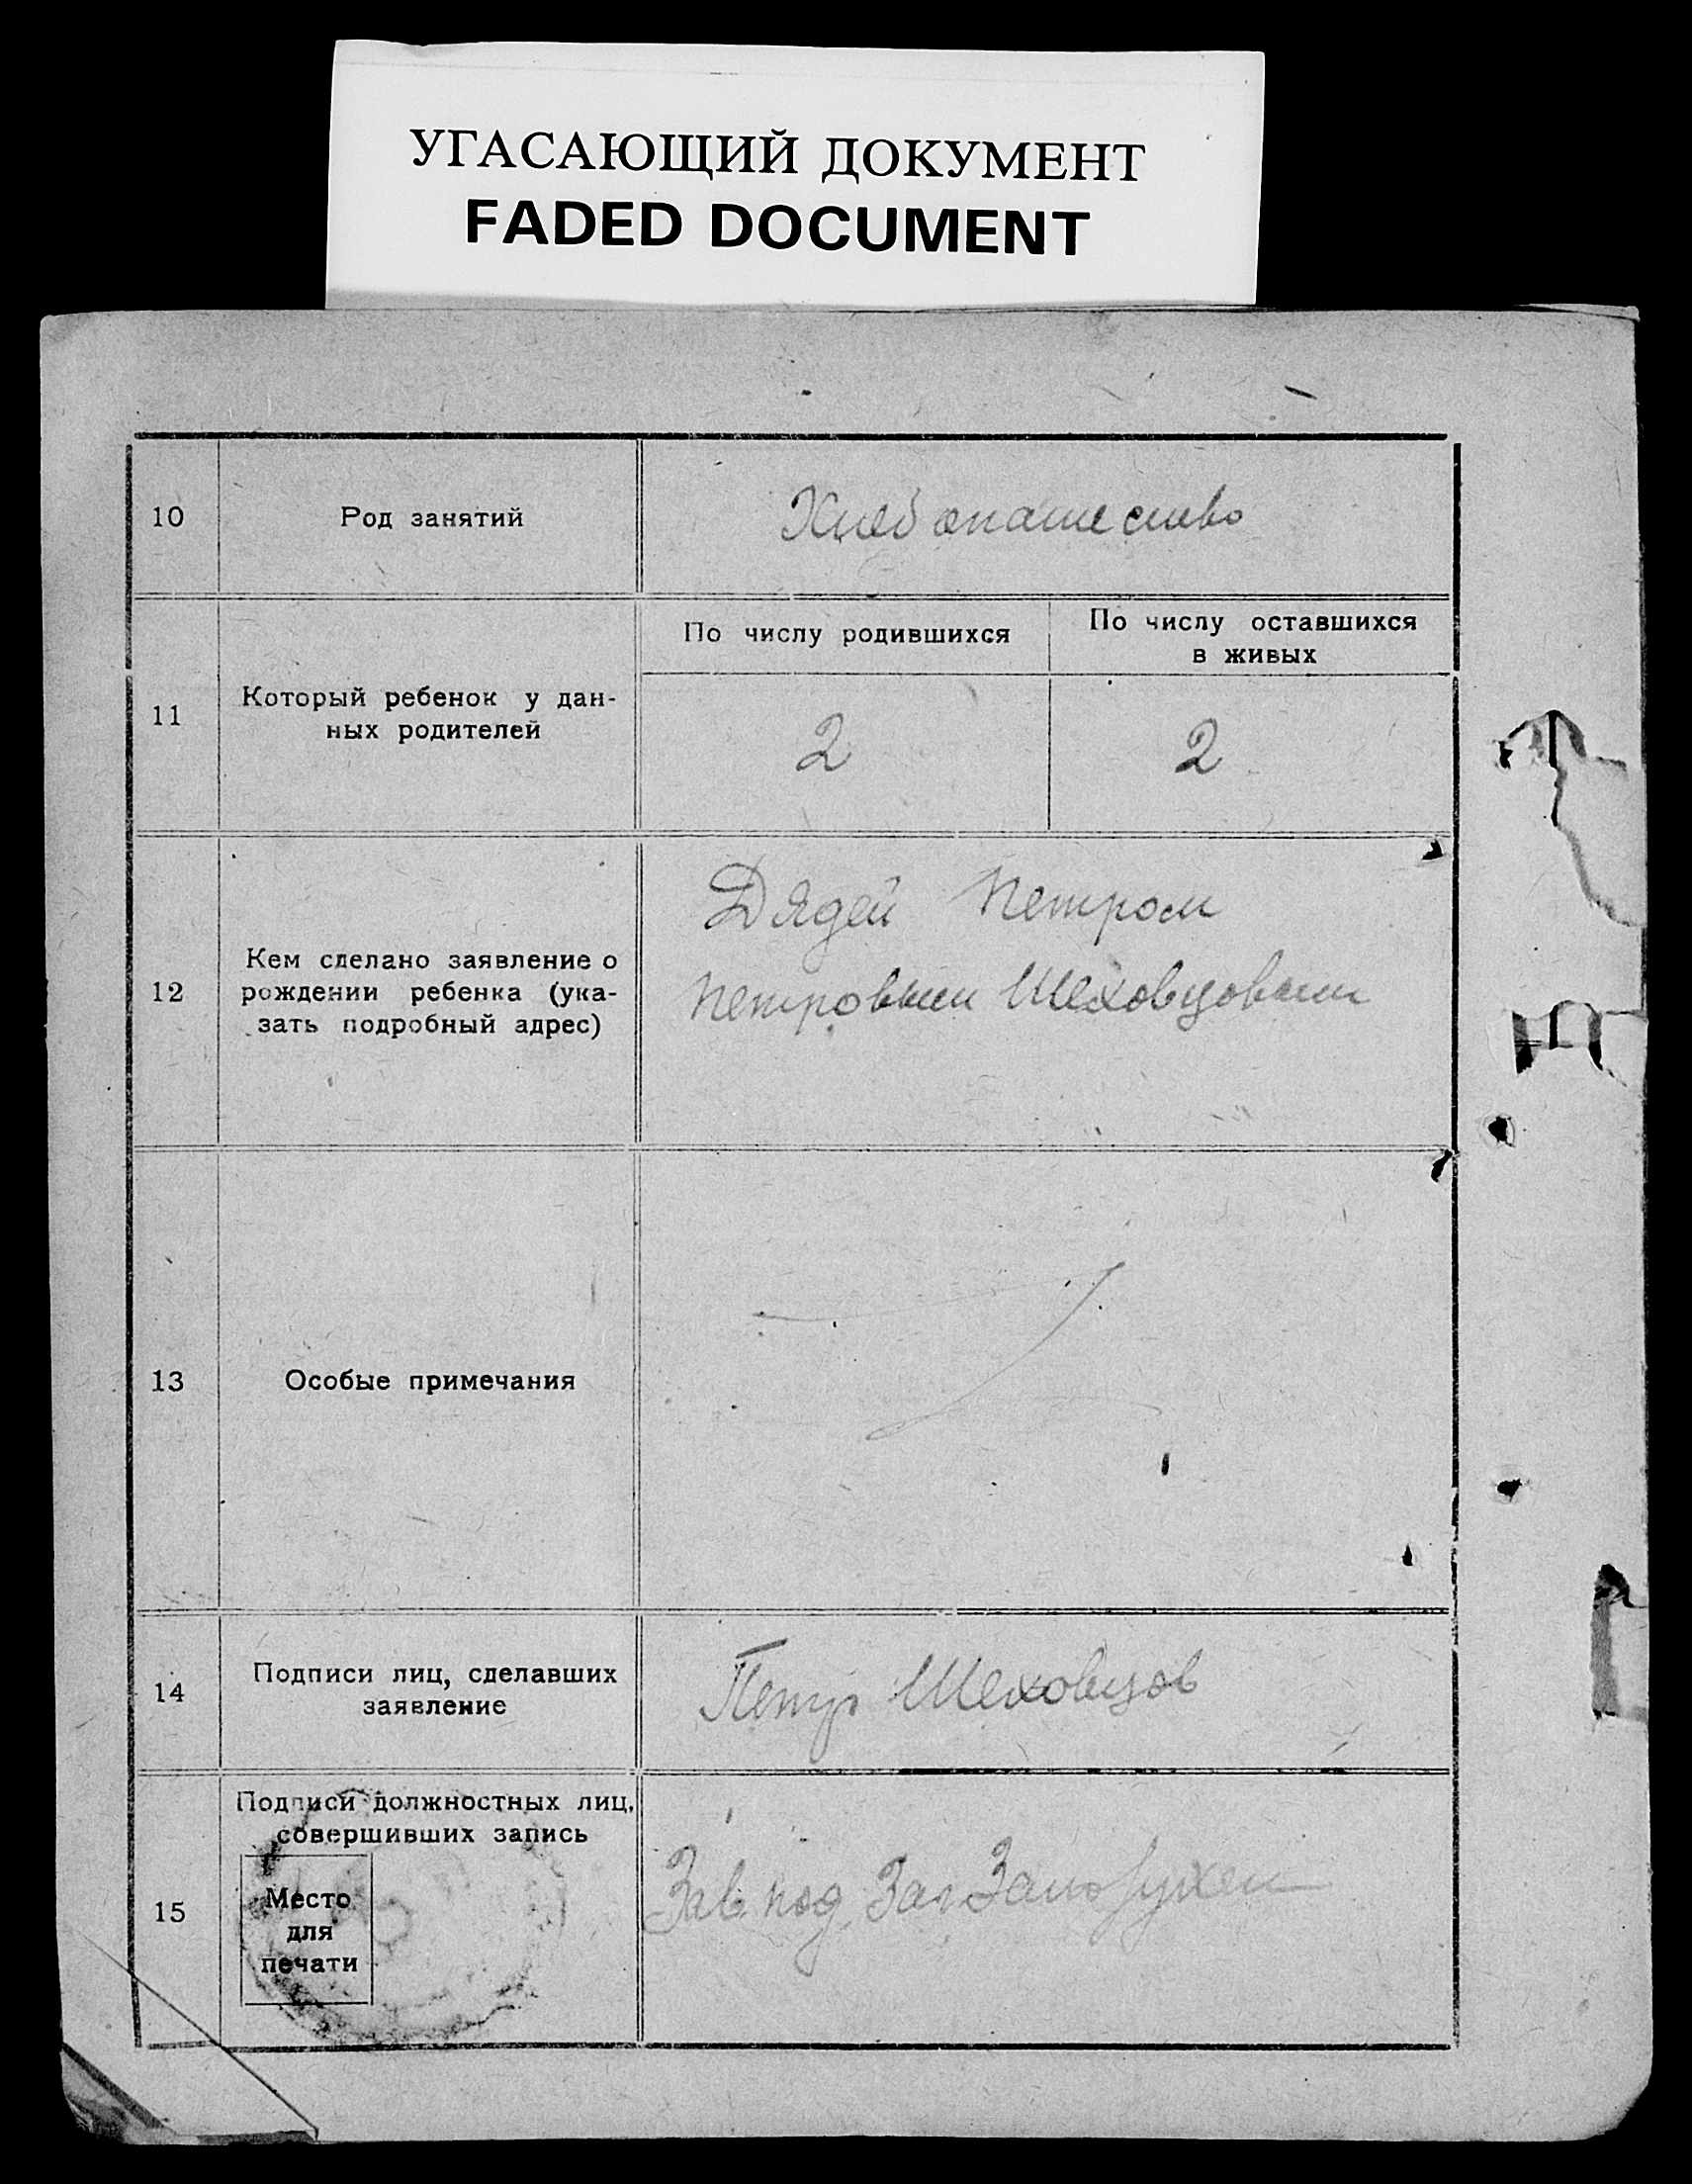 УГАСАЮЩИЙ ДОКУМЕНТ
FADED DOCUMENT
10
Род занятий
Хлебопашество
11
Который ребенок у дан-
ных родителей
По числу родившихся
По числу оставшихся
в живых
2
2
12
Кем сделано заявление о
рождении ребенка (ука-
зать подробный адрес)
Дядей Петром
Петровым Шеховцовым
13
Особые примечания
14
Подписи лиц, сделавших
заявление
Петр Шеховцов
15
Подписи должностных лиц,
совершивших запись
Место
для
печати
Зав. под